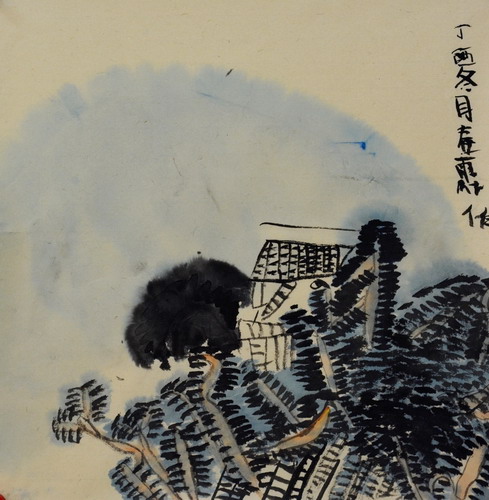 丁酉冬月春作